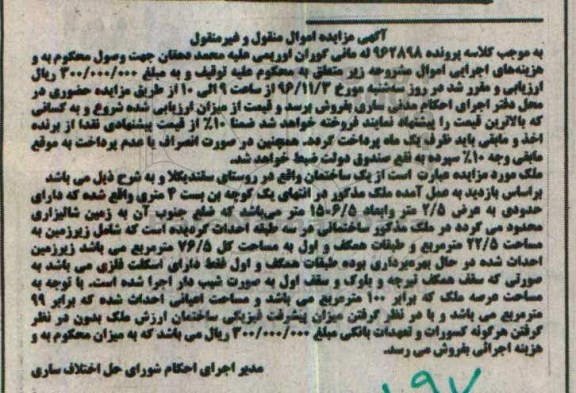 آگهی مزایده اموال منقول و غیرمنقول
به موجب کلاسه پرونده ۹۶۲۸۹۸ له مانی گوران اوریمی علیه محمد دهقان جهت وصول محکوم به و
هزینه‌های اجرایی اموال مشروحه زیر متعلق به محکوم علیه توقیف و به مبلغ ۳۰۰/۰۰۰/۰۰۰ ریال
ارزیابی و مقرر شد در روز سه‌شنبه مورخ ۹۶/۱۱/۳ از ساعت ۹ الی ۱۰ از طریق مزایده حضوری در
محل دفتر اجرای احکام مدنی ساری بفروش برسد و قیمت از میزان ارزیابی شده شروع و به کسانی
که بالاترین قیمت را پیشنهاد نمایند فروخته خواهد شد ضمنا ۱۰٪ از قیمت پیشنهادی نقدا از برنده
اخذ و مابقی باید ظرف یک ماه پرداخت گردد. همچنین در صورت انصراف یا عدم پرداخت به موقع
مابقی وجه ۱۰٪ سپرده به نفع صندوق دولت ضبط خواهد شد.
ملک مورد مزایده عبارت است از یک ساختمان واقع در روستای سقندیکلا و به شرح ذیل می باشد
براساس بازدید به عمل آمده ملک مذکور در انتهای یک کوچه بن بست ۴ متری واقع شده که دارای
حدودی به عرض ۲/۵ متر وابعاد ۶/۵*۱۵ متر می‌باشد که ضلع جنوب آن به زمین شالیزاری
محدود می گردد در ملک مذکور ساختمانی در سه طبقه احداث گردیده است که شامل زیرزمین به
مساحت ۲۲/۵ مترمربع و طبقات همکف و اول به مساحت کل ۷۶/۵ مترمربع می باشد زیرزمین
احداث شده در حال بهره‌برداری بوده طبقات همکف و اول فقط دارای اسکلت فلزی می باشد به
صورتی که سقف همکف تیرچه و بلوک و سقف اول به صورت شیب دار اجرا شده است. با توجه به
مساحت عرصه ملک که برابر ۱۰۰ مترمربع می باشد و مساحت اعیانی احداث شده که برابر ۹۹
مترمربع می باشد و با در نظر گرفتن میزان پیشرفت فیزیکی ساختمان ارزش ملک بدون در نظر
گرفتن هرگونه کسورات و تعهدات بانکی مبلغ ۳۰۰/۰۰۰/۰۰۰ ریال می باشد که به میزان محکوم به و
هزینه اجرائی بفروش می رسد.
مدیر اجرای احکام شورای حل اختلاف ساری